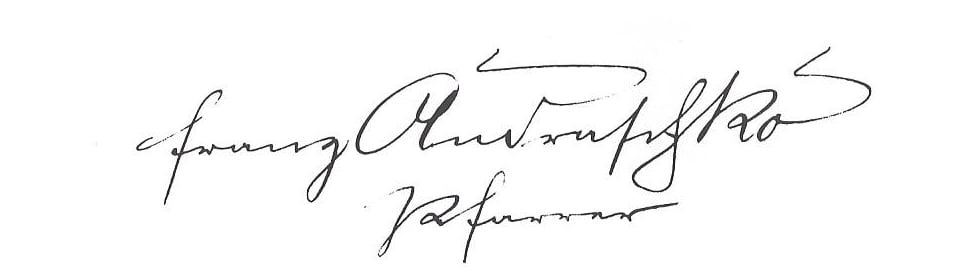 Franz Andraschko
Pfarrer